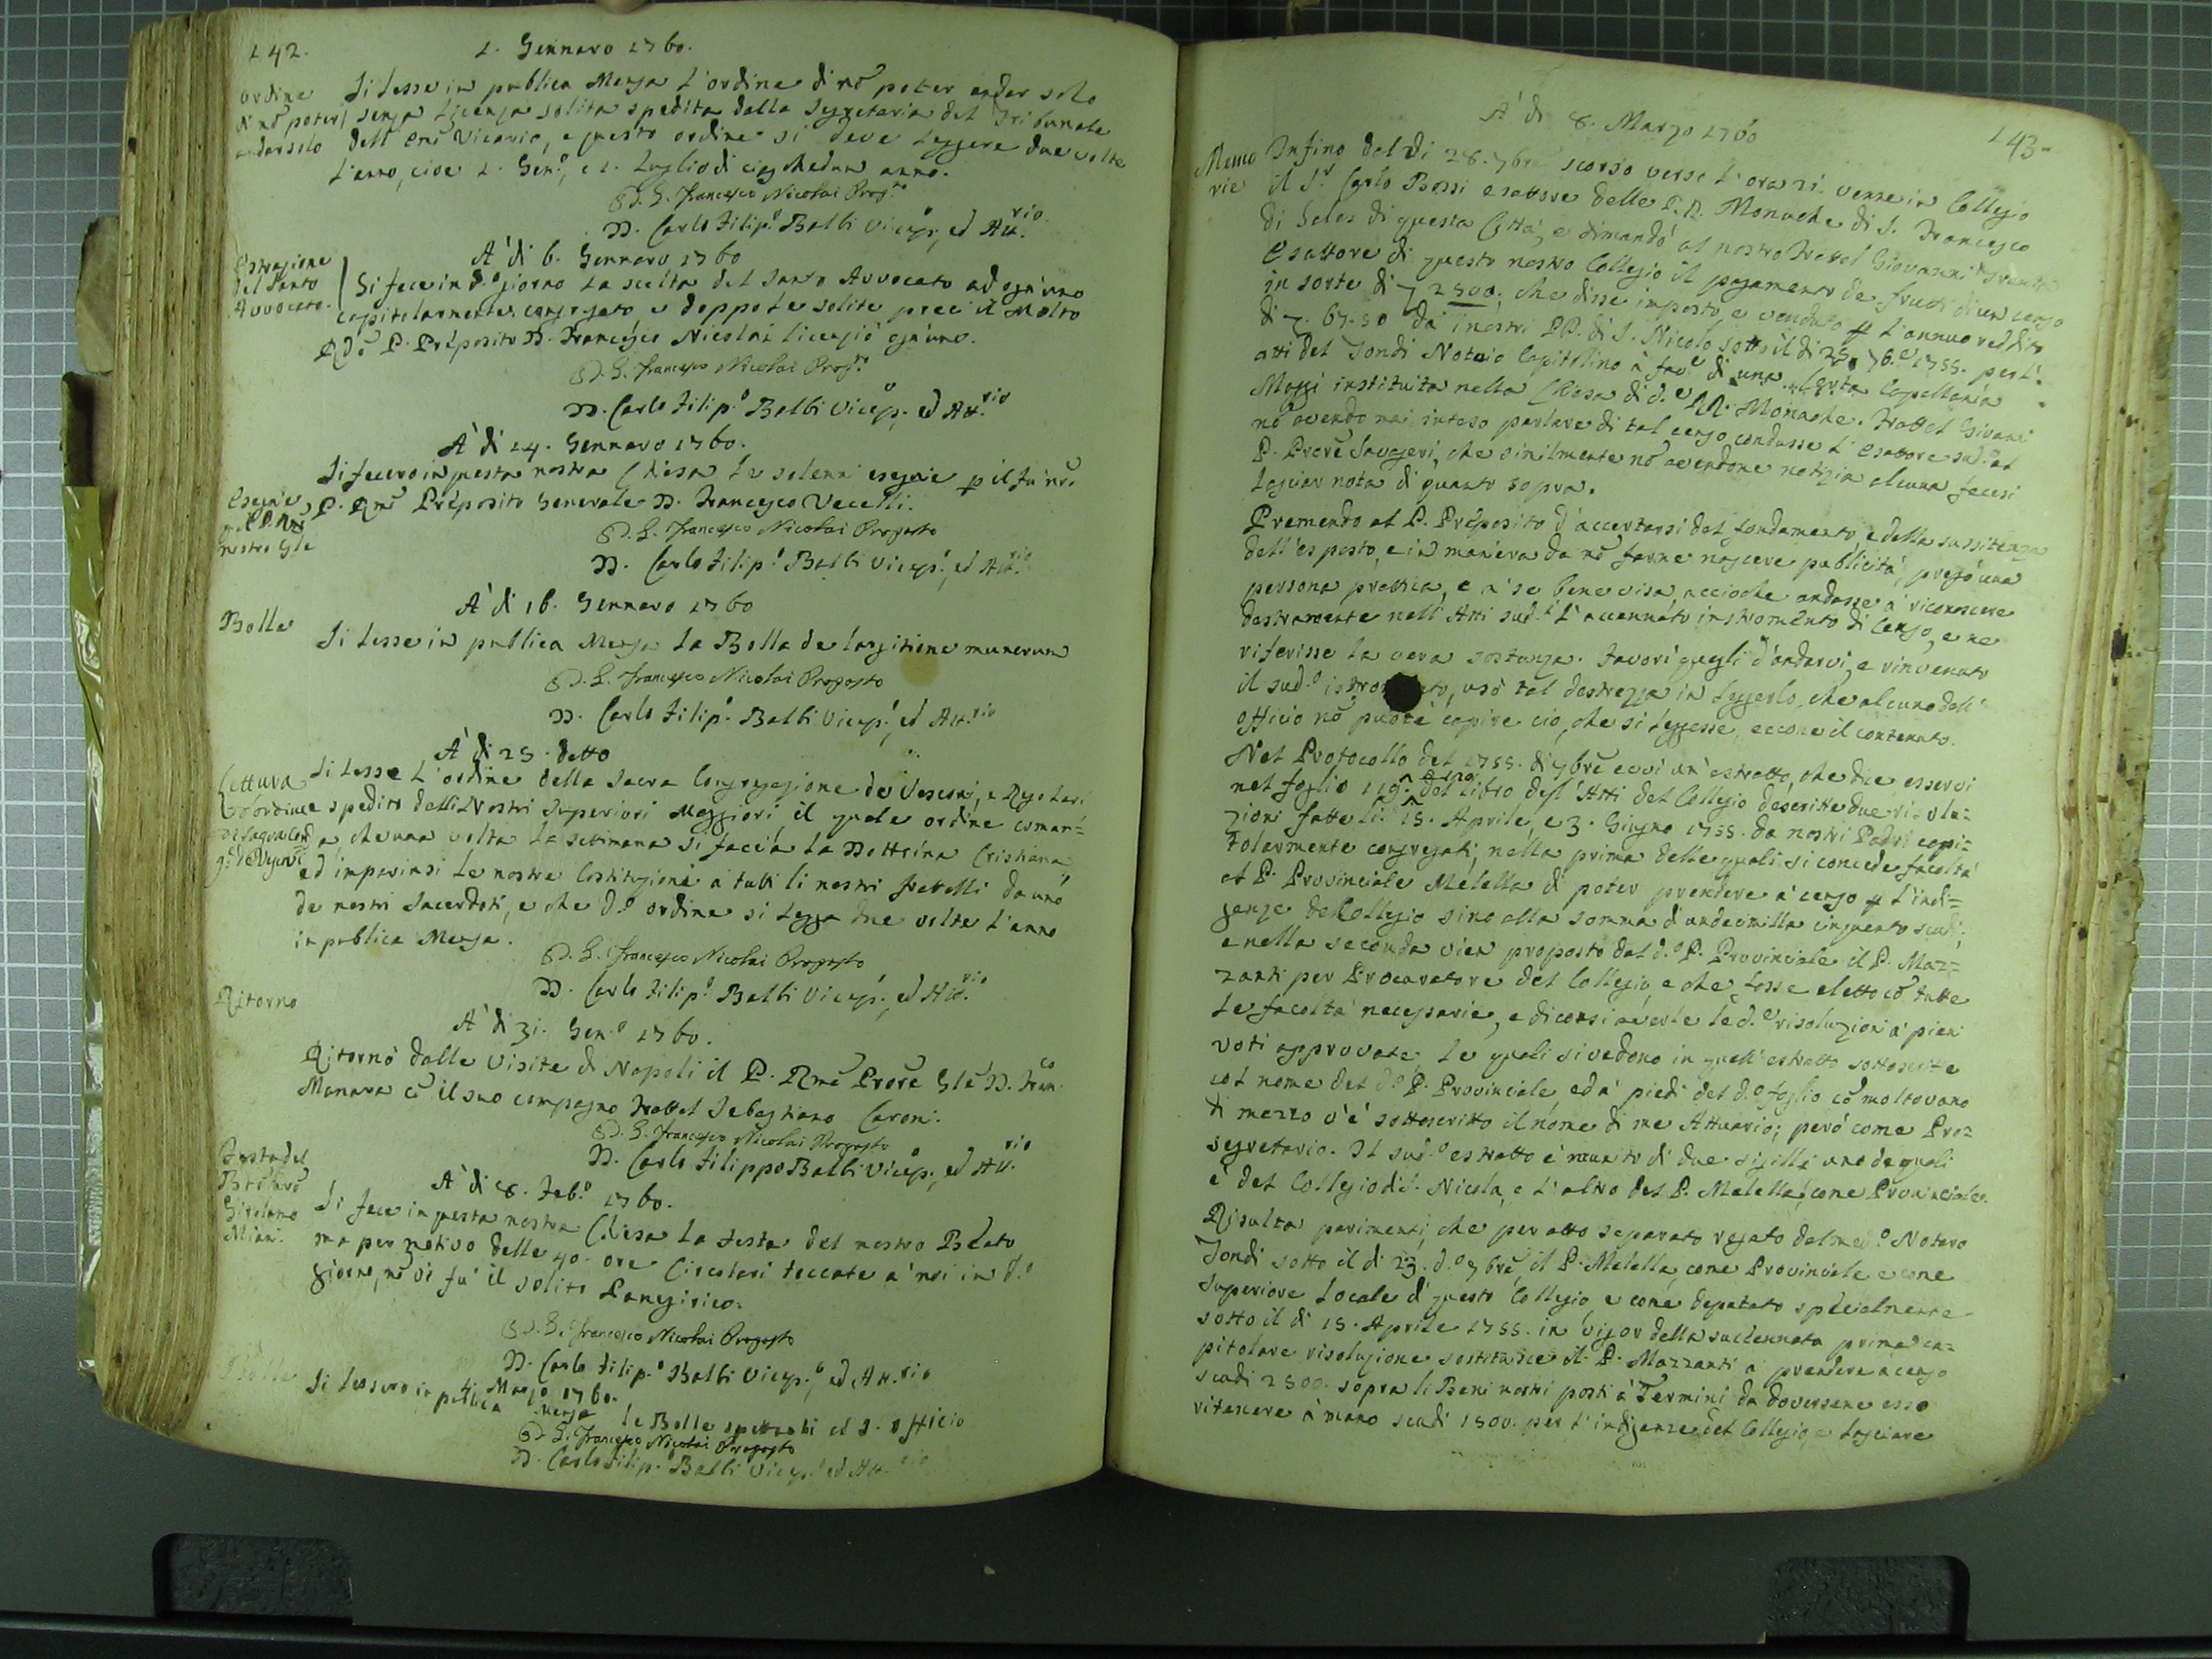 142.
1. Gennaro 1760.
Ordine
di nõ poter
andar solo
Si lesse in publica Mensa l'ordine di nõ poter andar solo
senza licenza solita spedita dalla Segretaria del Tribunale
dell' Emo Vicario, e questo ordine si deve leggere due volte
l'anno, cioe 1. Gen.o, e 1. Luglio di ciaschedun anno.
D. G. Francesco Nicolai Prop.to
D. Carlo Filip.o Balbi Vicep.o, ed Att.rio
A' di 6. Gennaro 1760
Estrazione
del Santo
Avvocato.
Si fece in d.o giorno la scelta del Santo Avvocato ad ogn'uno
capitolarmente congregato e doppo le solite preci il Molto
Rdo P. Preposito D. Francesco Nicolai licenziò ogn'uno.
D. G. Francesco Nicolai Prop.to
D. Carlo Filip.o Balbi Vicep.o, ed Att.rio
A' di 14. Gennaro 1760.
Esequie
nostro Gle
Si fecero in questa nostra Chiesa le solenni esequie p il fu nro
P. Rmo Preposito Generale D. Francesco Vecelli.
D. G. Francesco Nicolai Proposto
D. Carlo Filip.o Balbi Vicep.o, ed Att.rio
A' di 16. Gennaro 1760
Bolle
Si lesse in publica Mensa la Bolla de largitione munerum
D. G. Francesco Nicolai Proposto
D. Carlo Filip.o Balbi Vicep.o, ed Att.rio
A' di 25. detto
Lettura
Si lesse l'ordine della Sacra Congregazione de Vescovi, e Regolari
e spedito dalli Nostri Superiori Maggiori il quale ordine coman=
da che una volta la settimana si faccia la Dottrina Cristiana
ed imparinsi le nostre Costituzioni a tutti li nostri fratelli da uno
de nostri Sacerdoti, e che d.o ordine si legga due volte l'anno
in publica Mensa.
D. G. Francesco Nicolai Proposto
D. Carlo Filip.o Balbi Vicep.o, ed Att.rio
Ritorno
A' di 31. Gen.o 1760.
Ritornò dalle Visite di Napoli il P. Rmo Prore Gle D. Fran.co
Manara cõ il suo compagno Frattel Sebastiano Caroni.
D. G. Francesco Nicolai Proposto
D. Carlo Filippo Balbi Vicep.o, ed Att.rio
Festa del
Girolamo
Mian.
A' di 8. Feb.o 1760.
Si fece in questa nostra Chiesa la festa del nostro Beato
ma per motivo delle 40. ore Circolari toccate a' noi in d.o
giorno, nõ vi fu il solito Panegirico.
D. G. Francesco Nicolai Proposto
D. Carlo Filip.o Balbi Vicep.o, ed Att.rio
Bolle
Marzo 1760.
Si lessero in publica Mensa le Bolle spettanti al S. Officio
D. G. Francesco Nicolai Proposto
D. Carlo Filip.o Balbi Vicep.o ed Att.rio
143.
A' di 8. Marzo 1760
Memo
rie
Infino del di 28. 7bre scorso verso l'ora 21. venne in Collegio
il S.r Carlo Bossi esattore delle R.R. Monache di S. Francesco
di Sales di questa Città, e dimandò al nostro Frattel Giovanni
Esattore di questo nostro Collegio il pagamento de frutti di un censo
in sorte di 2500. che disse imposto, e venduto p l'annuo reddito
di 67.50 da' i nostri PP. di S. Nicolo sotto il di 25. 7b.e 1755. per l'
atti del Tondi Notaio Capitolino à fav.e di una Certa Capellania
Mossi instituita nella Chiesa di d.e RR. Monache. Frattel Giovani
nõ avendo mai inteso parlare di tal censo condusse l'Esattore sud.o al
P. Prore Savageri, che similmente nõ avendone notizia alcuna fecesi
lasciar nota di quanto sopra.
Premendo al P. Preposito d'accertarsi del fondamento, e della sussistenza
dell'esposto, e in maniera da nõ farne nascere publicità, pregò una
persona prattica, e a' se bene visa, accioche andasse à riconoscere
destramente nell'Atti sud.i l'accennato instromento di Censo, e ne
riferisse la vera sostanza. Favori quegli d'andarvi, e rinvenuto
il sud.o istro ato, usò tal destrezza in leggerlo, che alcuno dell'
Officio nõ puotè capire ciò, che si leggesse, eccone il contenuto.
Nel Protocollo del 1755. di 7bre evvi un'estratto, che dice esservi
nel foglio 119. del Libro degl'Atti del Collegio descritte due risolu=
zioni fatte li 15. Aprile, e 3. Giugno 1755. da nostri Padri capi=
tolarmente congregati, nella prima delle quali si concede facoltà
al P. Provinciale Melella di poter prendere à censo p l'indi=
genze del Collegio sino alla somma d'undecimilla cinquento scudi,
e nella seconda vien proposto dal d.o P. Provinciale il P. Maz=
zanti per Procuratore del Collegio, e che fosse eletto cõ tutte
le facoltà necessarie, e diconsi averle le d.e risoluzioni à pieni
voti approvate. Le quali si vedono in quell'estratto sottoscritte
col nome del d.o P. Provinciale, ed à piedi del d.o foglio cõ molto vano
di mezzo v'è sottoscritto il nome di me Attuario; però come Pro=
segretario. Il sud.o estratto è munito di due sigilli uno de quali
è del Collegio di S. Nicola, e l'altro del P. Melella, come Provinciale.
Risulta parimenti, che per atto separato rogato dal med.o Notaro
Tondi sotto il di 23. d.o 7bre il P. Melella, come Provinciale e come
Superiore Locale di questo Collegio, e come deputato specialmente
sotto il di 15. Aprile 1755. in vigor della sucennata prima ca=
pitolare risoluzione sostituisce il P. Mazzanti à prendere a censo
scudi 2500. sopra li Beni nostri posti à Termini da doversene esso
ritenere à mano scudi 1500. per l'indigenze del Collegio, e lasciare